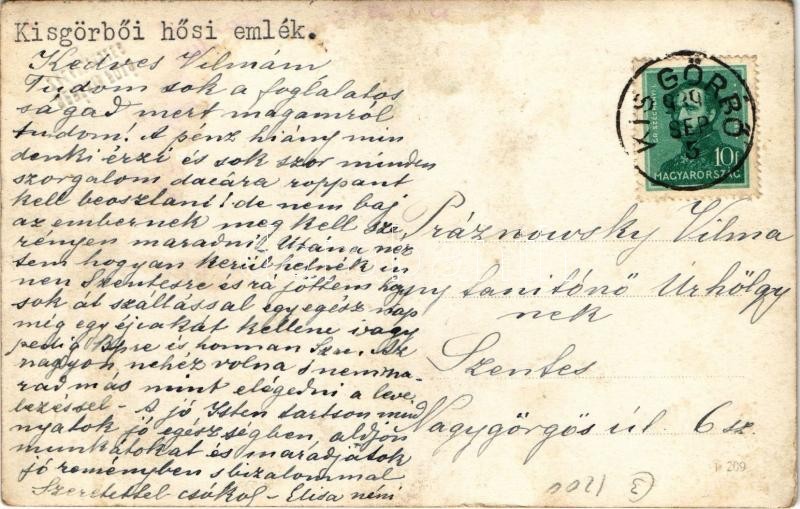 Kisgörbői hősi emlék.
Kedves Vilmám
Tudom sok a foglalatos
ságad mert magamról
tudom! A pénz hiány min
denki érzi és sok szor minden
szorgalom dacára roppant
kell beosztani! de nem baj
az embernek meg kell sze
rényen maradni! Utána néz
tem hogyan kerülhetnék in
nen Szentesre és rá jöttem hogy
sok át szállással egy egész nap
még egy éjcakát kellene vagy
pedig Bpre és honnan Szre. Az
nagyon nehéz volna s nem ma
rad más mint elégedni a leve
lezéssel - A jó Isten tartson mind
nyatok jó egészségben, aldjon
munkátokat és maradjatok
jó reményben s bizalommal
Szeretettel csókol - Elisa néni
KISGÖRBŐ
939
SEP
5
GR. SZÉCHENYI
10f
MAGYARORSZÁG
Práznowsky Vilma
tanitónö Úrhölgy
nek
Szentes
Nagygörgős úl. 6 sz.
209
3 1200